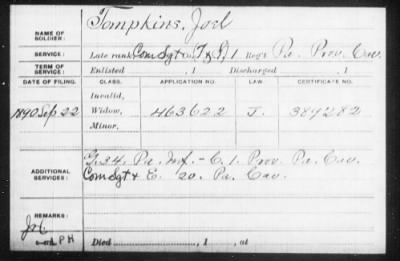 NAME OF SOLDIER: Tompkins, Joel
SERVICE: Late rank, Com Sgt Co. F & I, 1 Reg't Pa. Prov. Cav.
TERM OF SERVICE: Enlisted , 1 Discharged , 1
DATE OF FILING. CLASS. APPLICATION NO. LAW. CERTIFICATE NO.
Invalid,
1890 Sep 22 Widow, 463622 J. 384282
Minor,
G. 34, Pa. Inf. - C. 1. Prov. Pa. Cav.
ADDITIONAL SERVICES: Com Sgt & C. 20. Pa. Cav.
REMARKS:
P H
Died , 1 , at